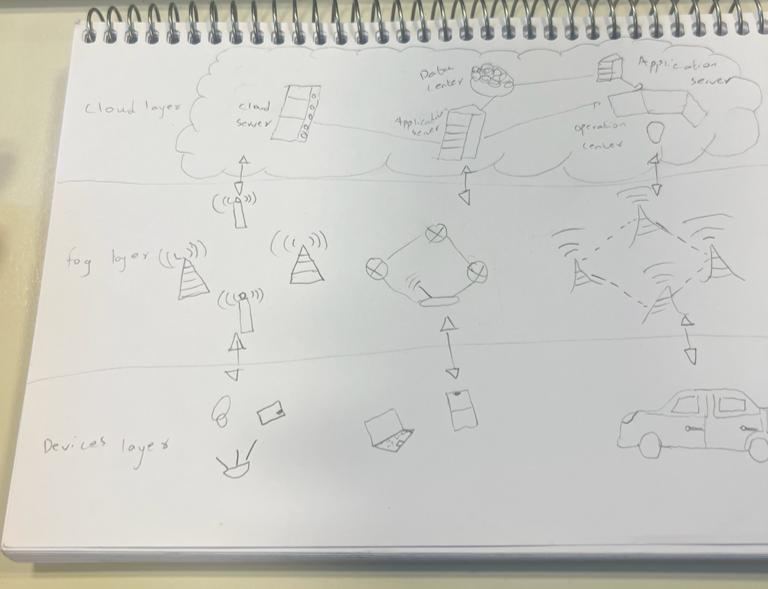 Cloud layer
Cloud
server
Data
center
Application
server
Application
server
operation
center
fog layer
Devices layer